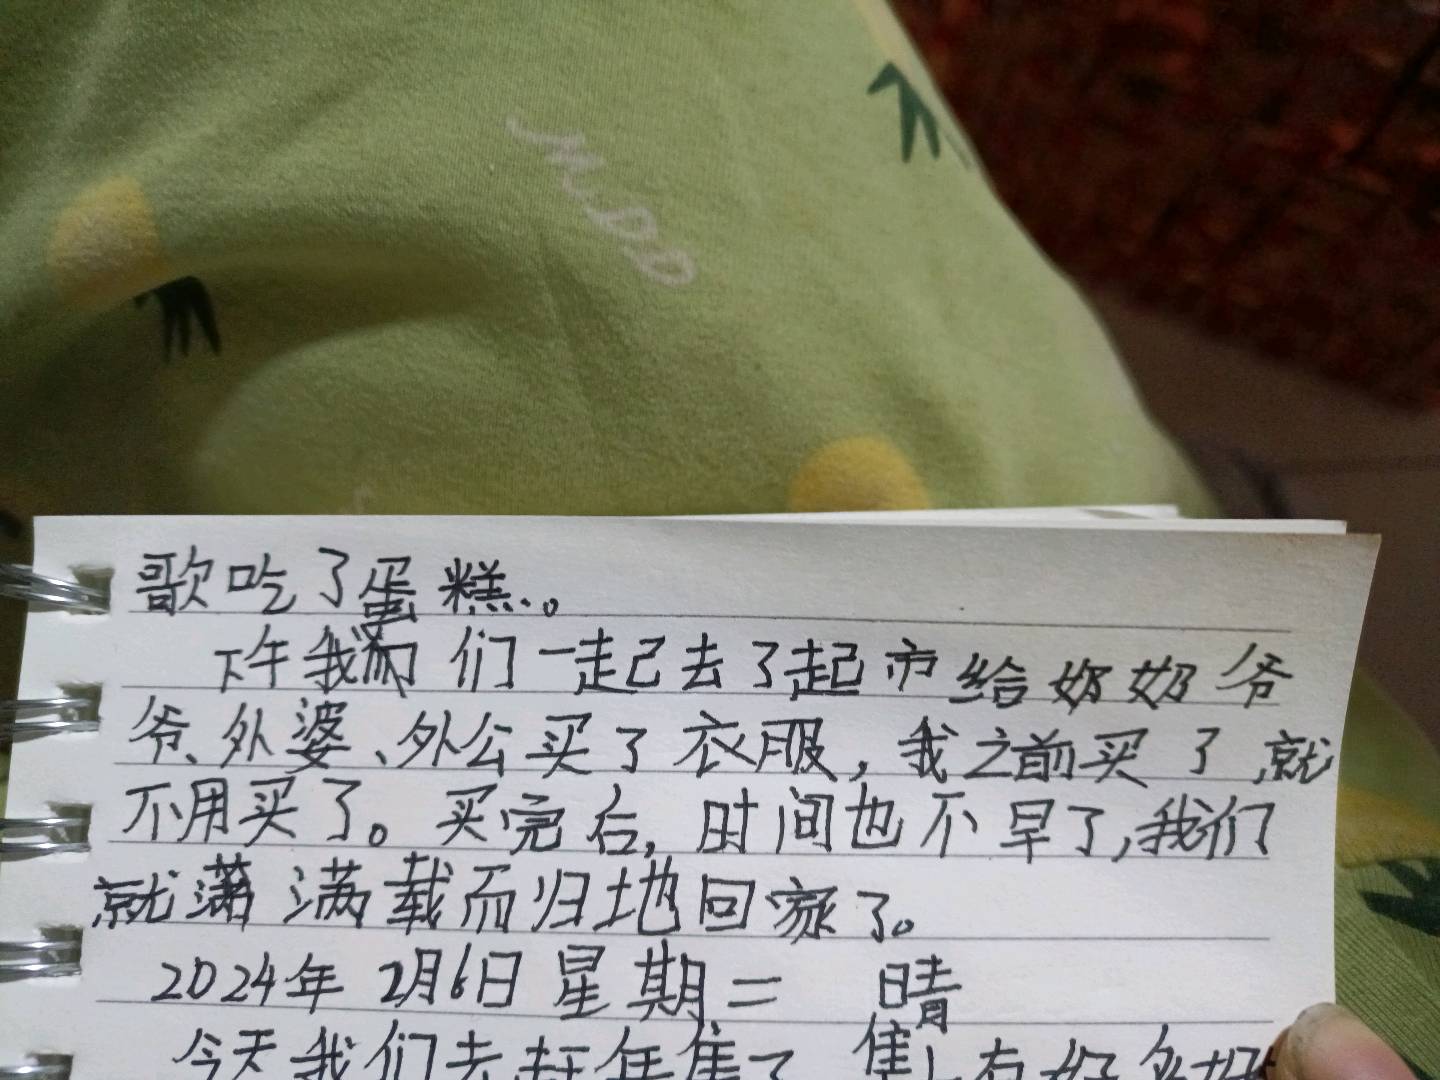 歌吃了蛋糕。
下午我们一走己去了起市给奶奶爷
爷、外婆、外公买了衣服，我之前买了,就
不用买了。买完后，时间也不早了,我们
就满满载而归地回家了。
2024年2月6日星期二 晴
今天我们去赶年集了 集上有好多好